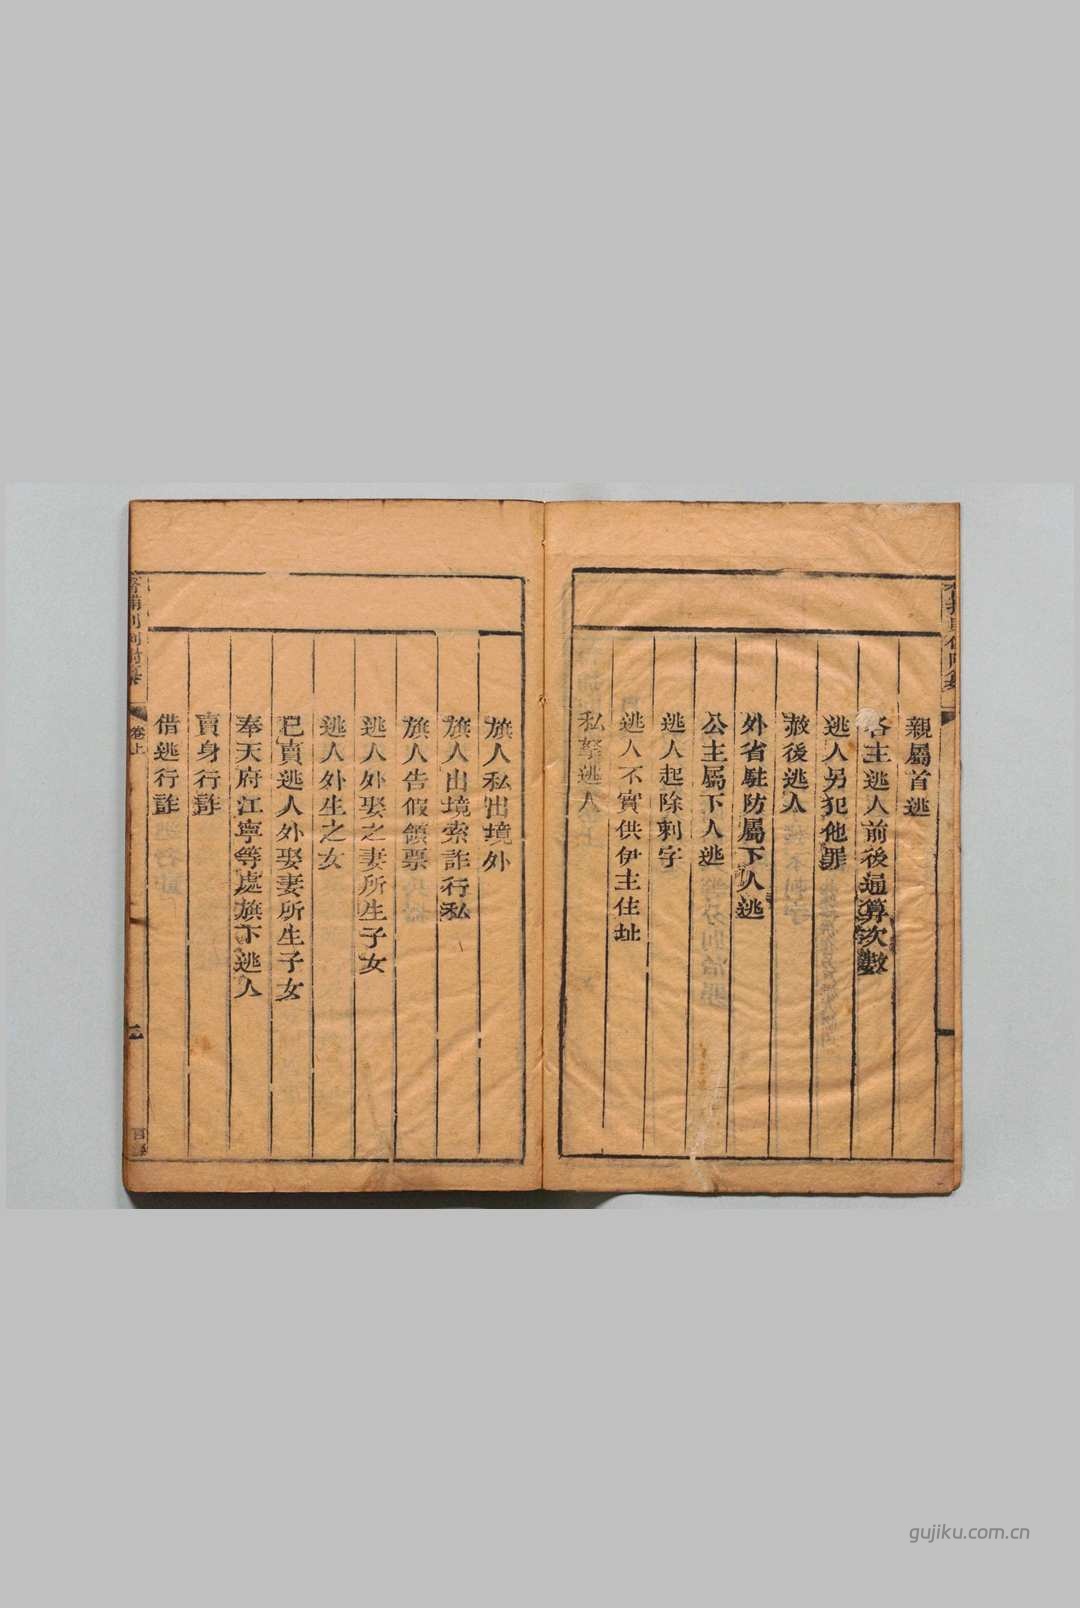 親屬首逃
各主逃人前後通算次數
逃人另犯他罪
赦後逃人
外省駐防屬下人逃
公主屬下人逃
逃人起除刺字
逃人不實供伊主住址
私拏逃人
旗人私出境外
旗人出境索詐行私
旗人告假領票
逃人外娶之妻所生子女
逃人外生之女
已賣逃人外娶妻所生子女
奉天府江寧等處旗下逃人
賣身行詐
借逃行詐
卷上
gujiku.com.cn